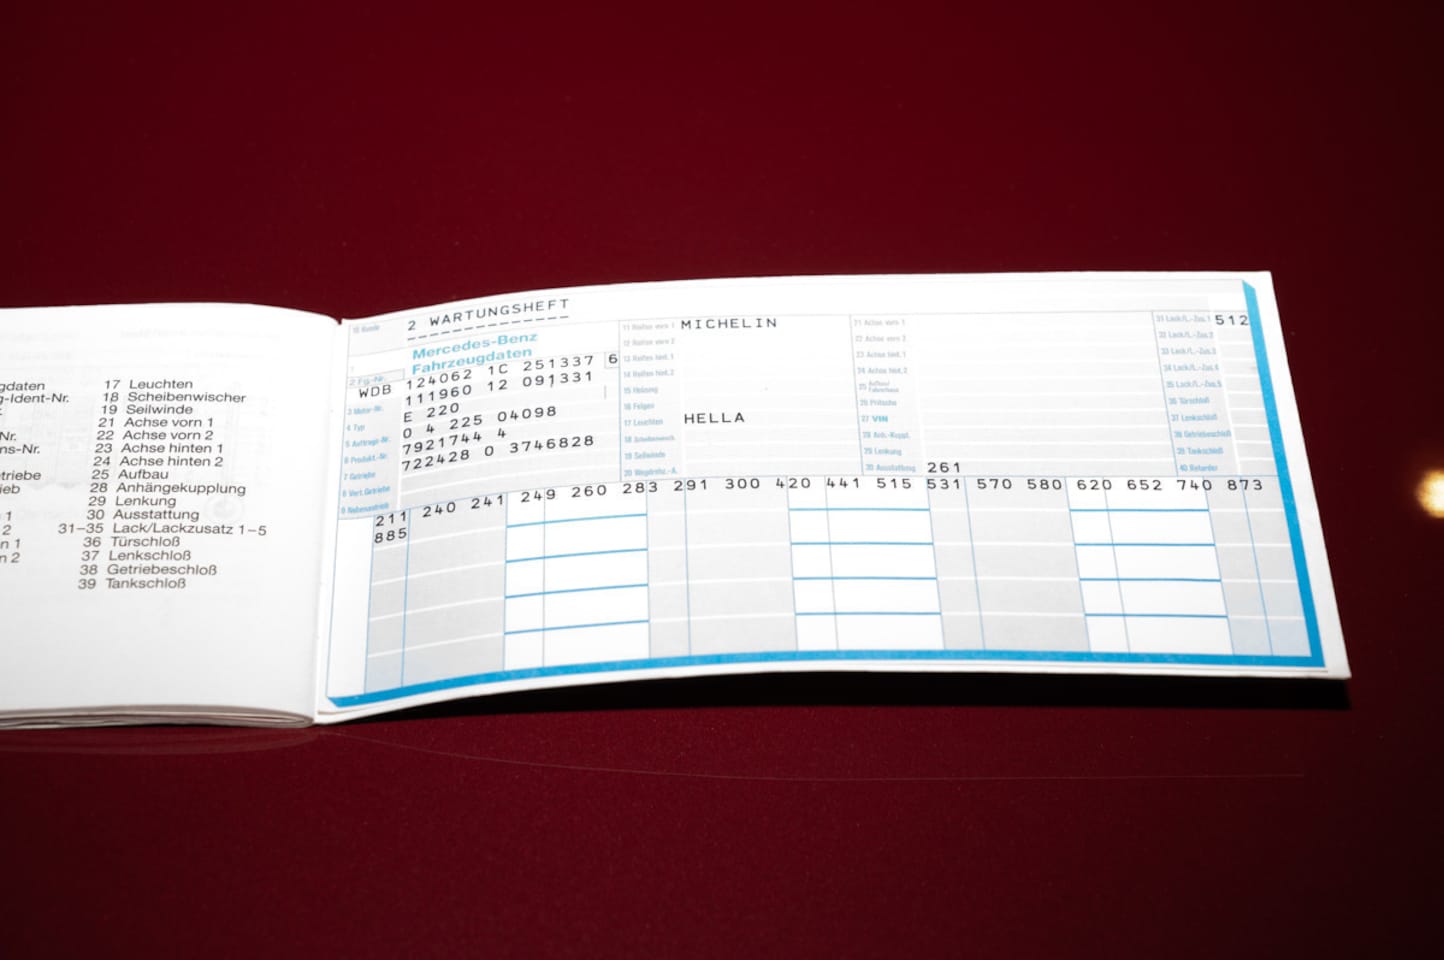 gdaten
g-Ident-Nr.
Nr.
ns-Nr.
triebe
ieb
1
2
n 1
n 2
17 Leuchten
18 Scheibenwischer
19 Seilwinde
21 Achse vorn 1
22 Achse vorn 2
23 Achse hinten 1
24 Achse hinten 2
25 Aufbau
28 Anhängekupplung
29 Lenkung
30 Ausstattung
31–35 Lack/Lackzusatz 1–5
36 Türschloß
37 Lenkschloß
38 Getriebeschloß
39 Tankschloß
10 Kunde
2 WARTUNGSHEFT
1
Mercedes-Benz
Fahrzeugdaten
2 Fg.-Nr.
WDB 124062 1C 251337 6
3 Motor-Nr. 111960 12 091331
4 Typ E 220
5 Auftrags-Nr. 0 4 225 04098
6 Produkt.-Nr. 7921744 4
7 Getriebe 722428 0 3746828
8 Vert.Getriebe
9 Nebenantrieb
11 Reifen vorn 1 MICHELIN
12 Reifen vorn 2
13 Reifen hint.1
14 Reifen hint.2
15 Heizung
16 Felgen
17 Leuchten HELLA
18 Scheibenwisch.
19 Seilwinde
20 Wegdrehz.-A.
21 Achse vorn 1
22 Achse vorn 2
23 Achse hint.1
24 Achse hint.2
25 Aufbau/
Fahrerhaus
26 Pritsche
27 VIN
28 Anh.-Kuppl.
29 Lenkung
30 Ausstattung 261
31 Lack/L.-Zus.1 512
32 Lack/L.-Zus.2
33 Lack/L.-Zus.3
34 Lack/L.-Zus.4
35 Lack/L.-Zus.5
36 Türschloß
37 Lenkschloß
38 Getriebeschloß
39 Tankschloß
40 Retarder
211 240 241 249 260 283 291 300 420 441 515 531 570 580 620 652 740 873
885